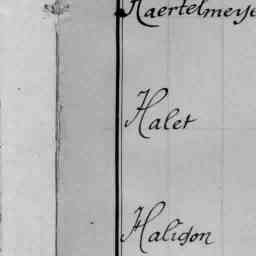 Haertelmeye
Halet
Haligon